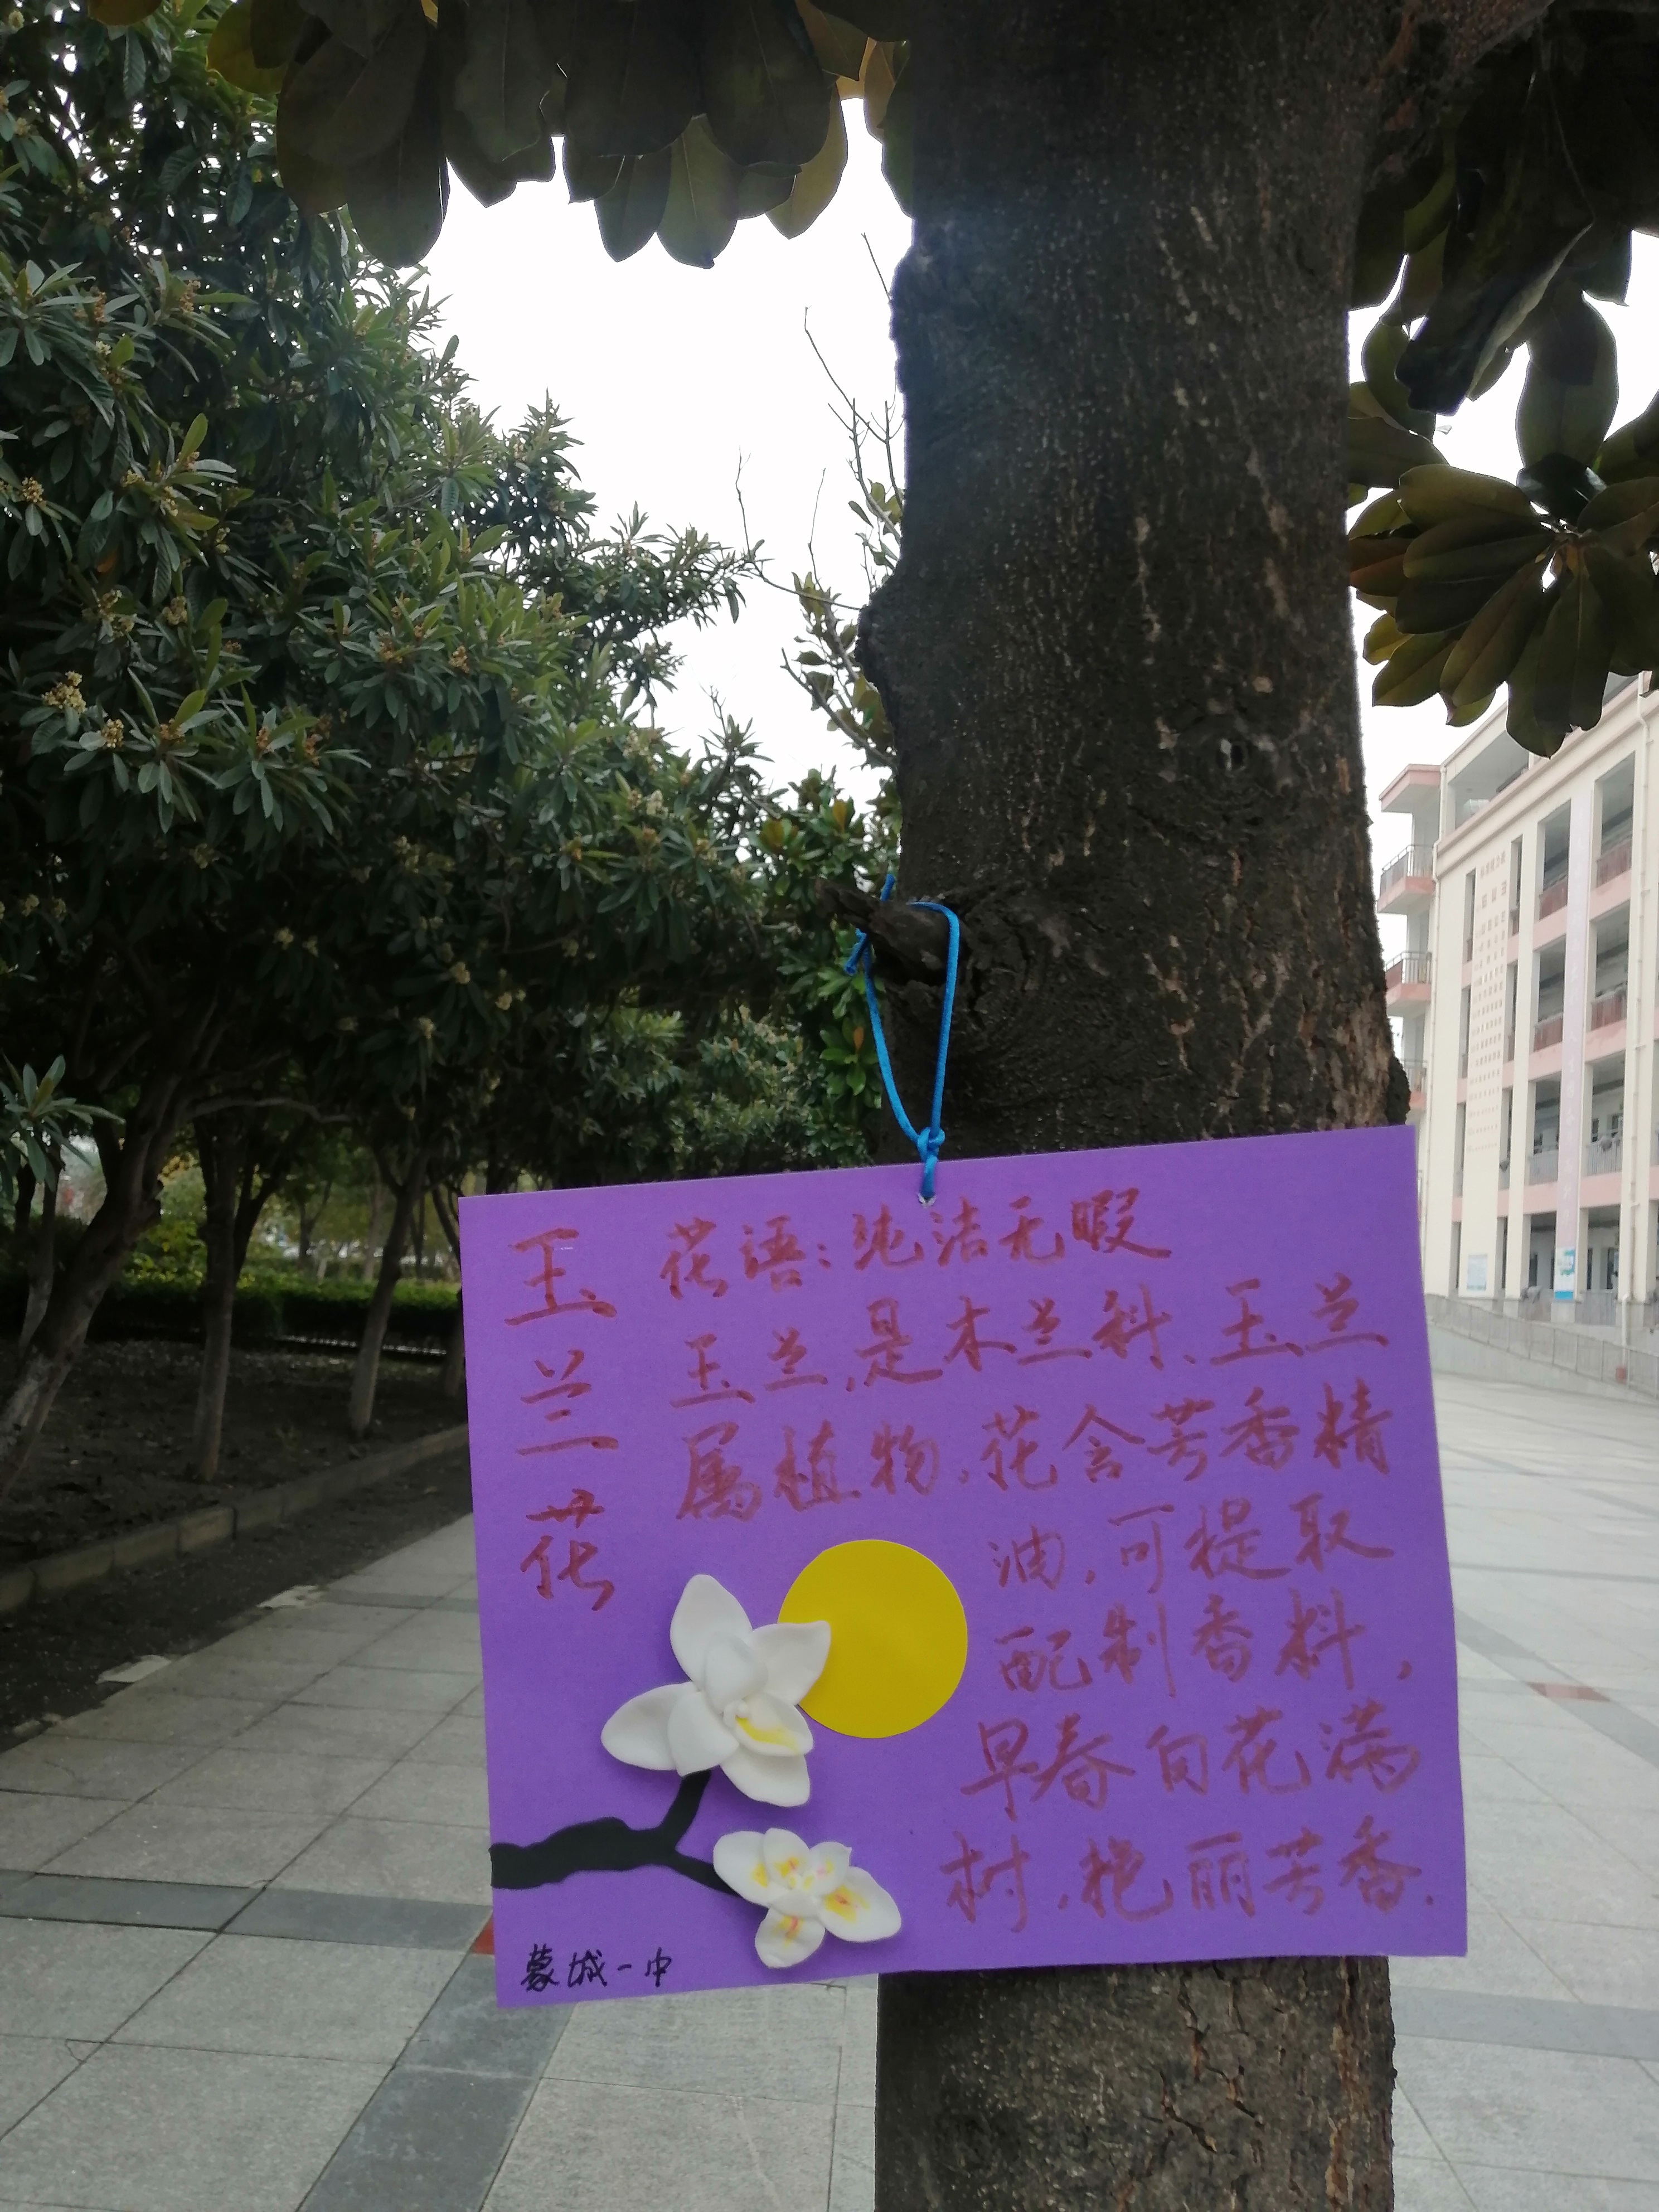 玉兰花
花语：纯洁无暇
玉兰，是木兰科、玉兰
属植物．花含芳香精
油．可提取
配制香料，
早春白花满
树．艳丽芳香．
蒙城一中